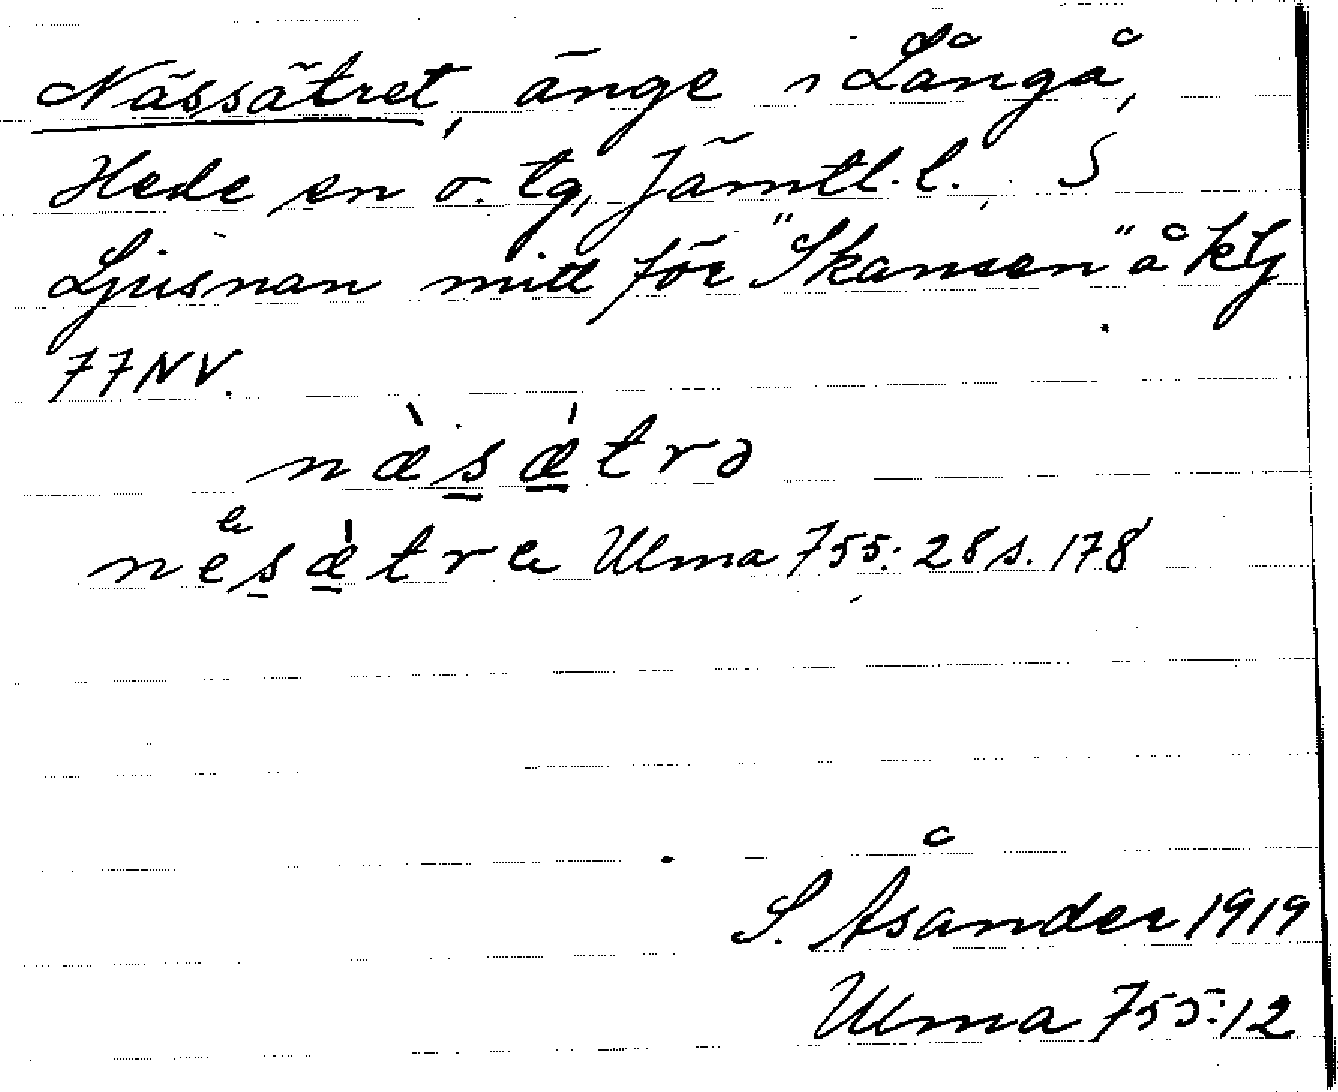 Nässätret, änge i Långå,
Hede sn o. tg, Jämtl. l. S
Ljusnan mitt för "Skansen" å ktg
77NV.
næ̀sǽtrə
nesætra Ulma 755:28 s. 178
S. Åsander 1919
Ulma 755:12